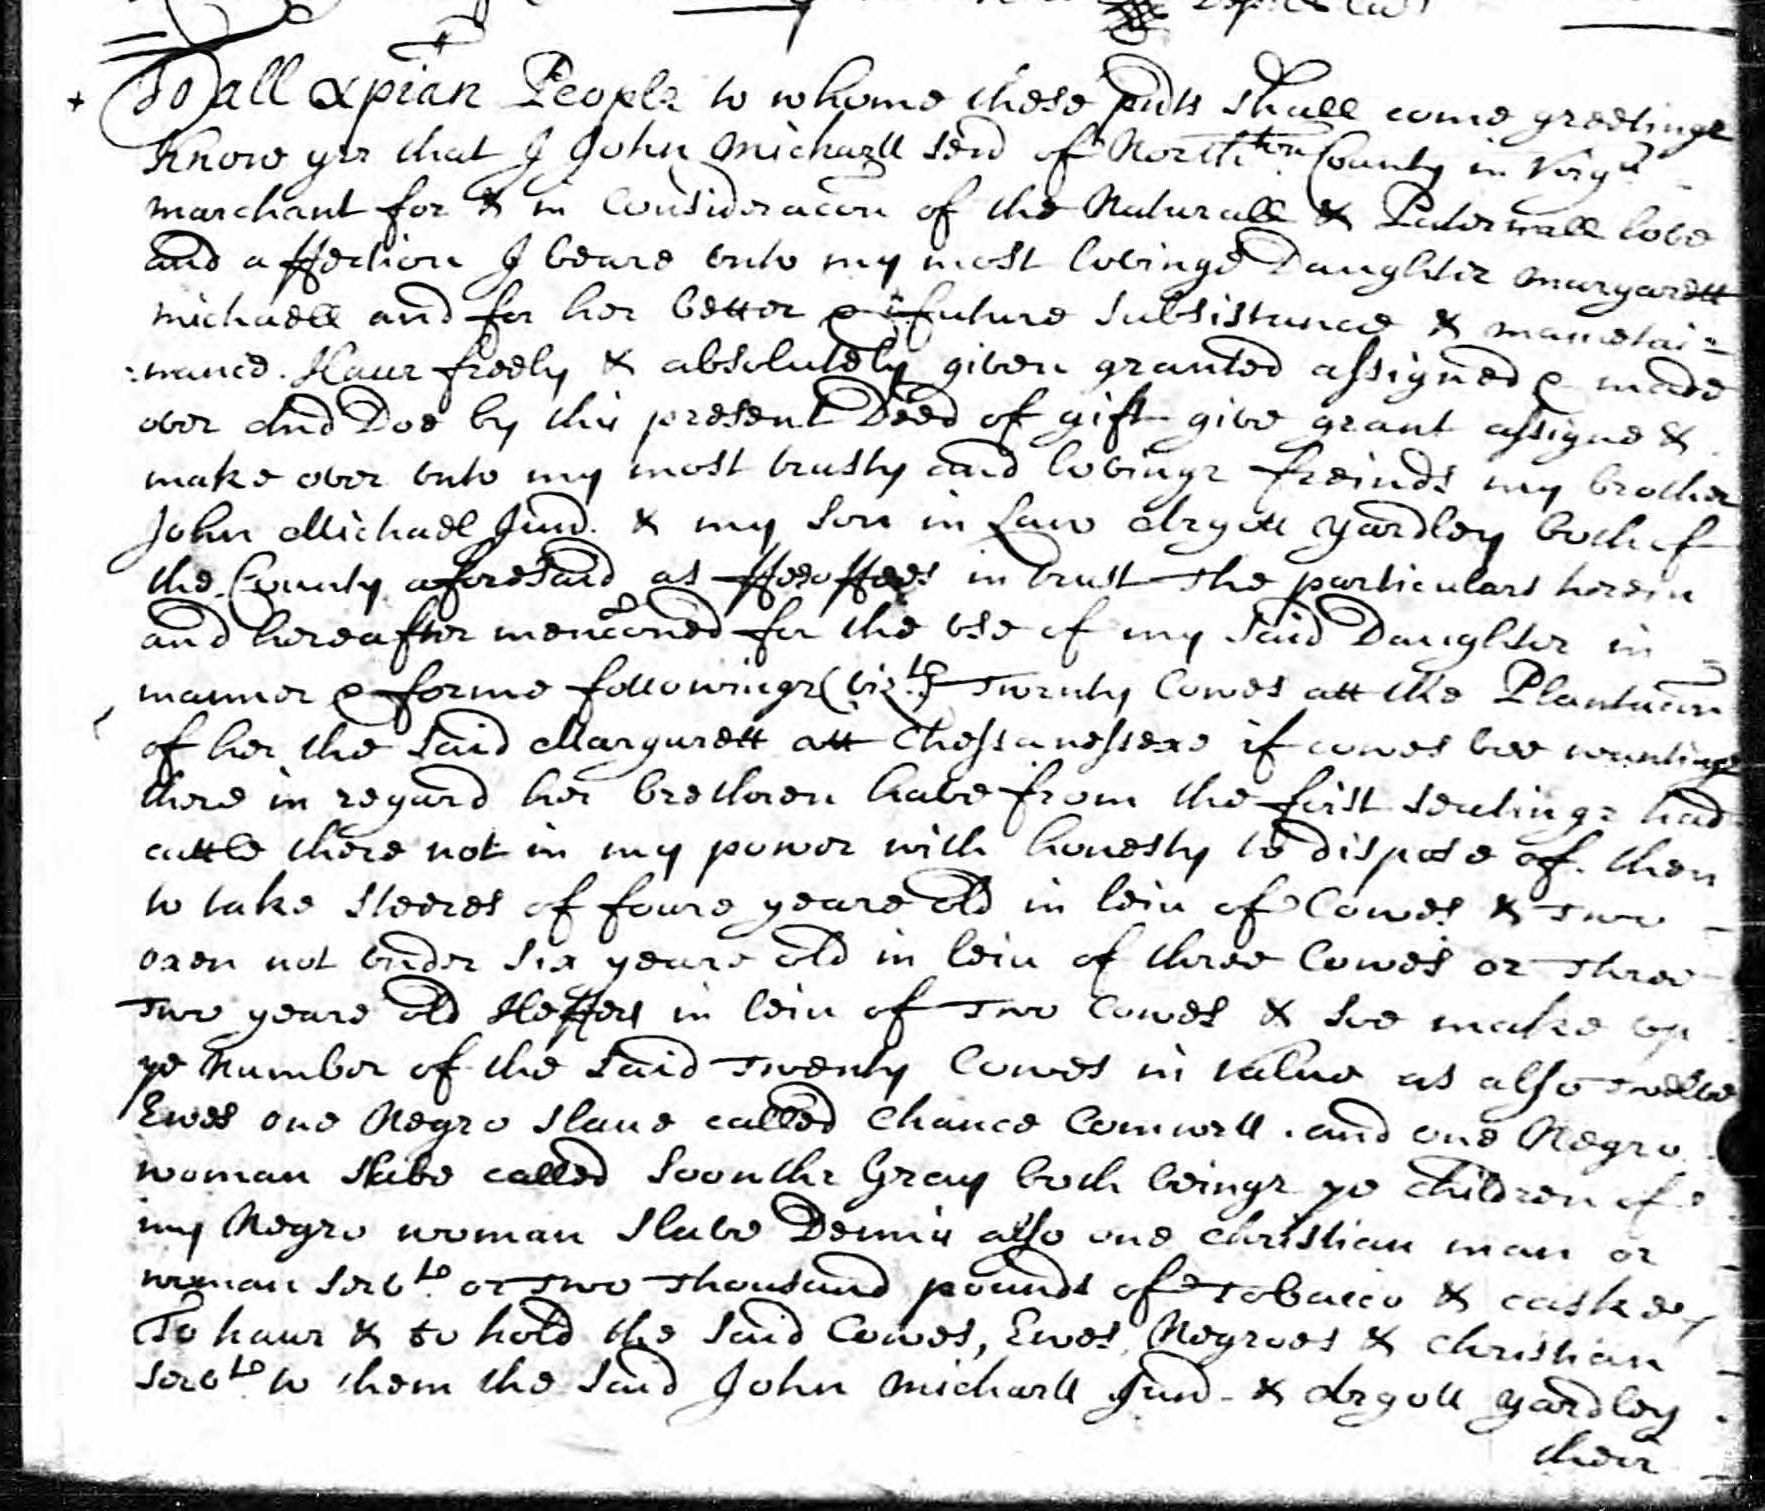 To all xpian People to whome these pnts shall come greetinge
Know yee that I John Michaell Senr of Northton County in Virga
marchant for & in Consideracon of the Naturall & Paternall love
and affection I beare unto my most lovinge Daughter Margarett
Michaell and for her better & future subsistance & mainetai=
=nance. Have freely & absolutely given granted assigned & made
over And Doe by this present Deed of gift give grant assigne &
make over unto my most trusty and lovinge freinds my brother
John Michael Junr. & my son in Law Argoll Yardley both of
the County aforesaid as ffeoffees in trust The particulars herein
and hereafter menconed for the use of my said Daughter in
manner & forme followinge (vizt) Twenty Cowes att the Plantacon
of her the said Margarett att Chessanessexe if cowes bee wantinge
there in regard her brethren have from the first seatinge had
cattle there not in my power with honesty to dispose of. then
to take steeres of foure yeare old in leiu of Cowes & Two
oxen not under six yeare old in leiu of three Cowes or Three
Two yeare old Heffers in leiu of Two Cowes & soe make up
ye Number of the said Twenty Cowes in value as also Twelve
Ewes one Negro slave called Chance Comwell. and one Negro
woman slave called Soonthe Gray both beinge ye children of
my Negro woman Slave Dennis also one christian man or
woman servt. or Two Thousand pounds of Tobacco & caske
To have & to hold the said Cowes, Ewes, Negroes & Christian
servt to them the said John Michaell Junr & Argoll Yardley
their